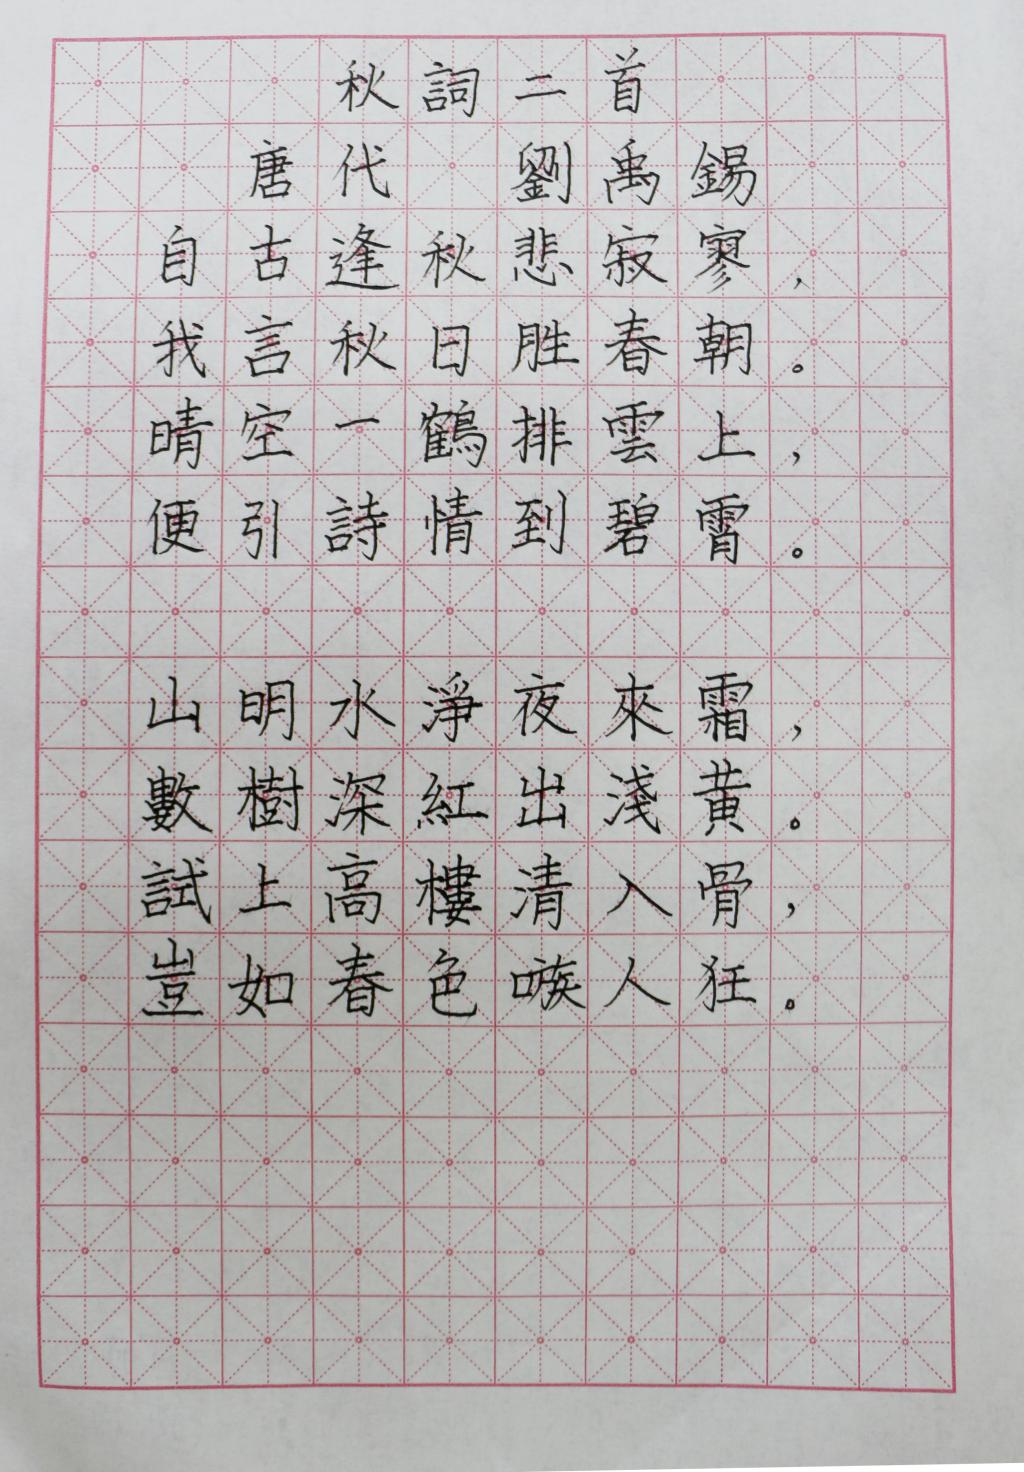 秋詞二首
唐代 劉禹錫
自古逢秋悲寂寥，
我言秋日胜春朝。
晴空一鶴排雲上，
便引詩情到碧霄。
山明水淨夜來霜，
數樹深紅出淺黃。
試上高樓清入骨，
豈如春色嗾人狂。